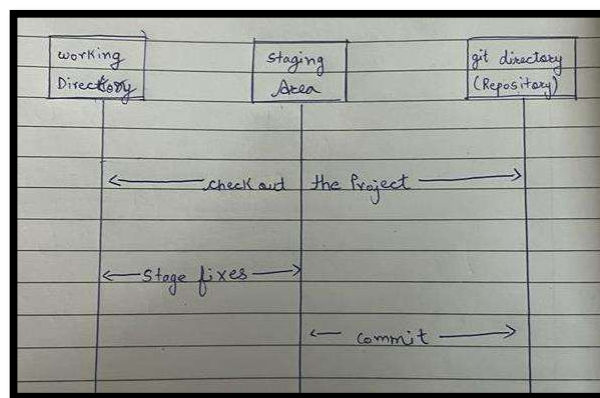 working
Directory
Staging
Area
git directory
(Repository)
check out the Project
Stage fixes
Commit